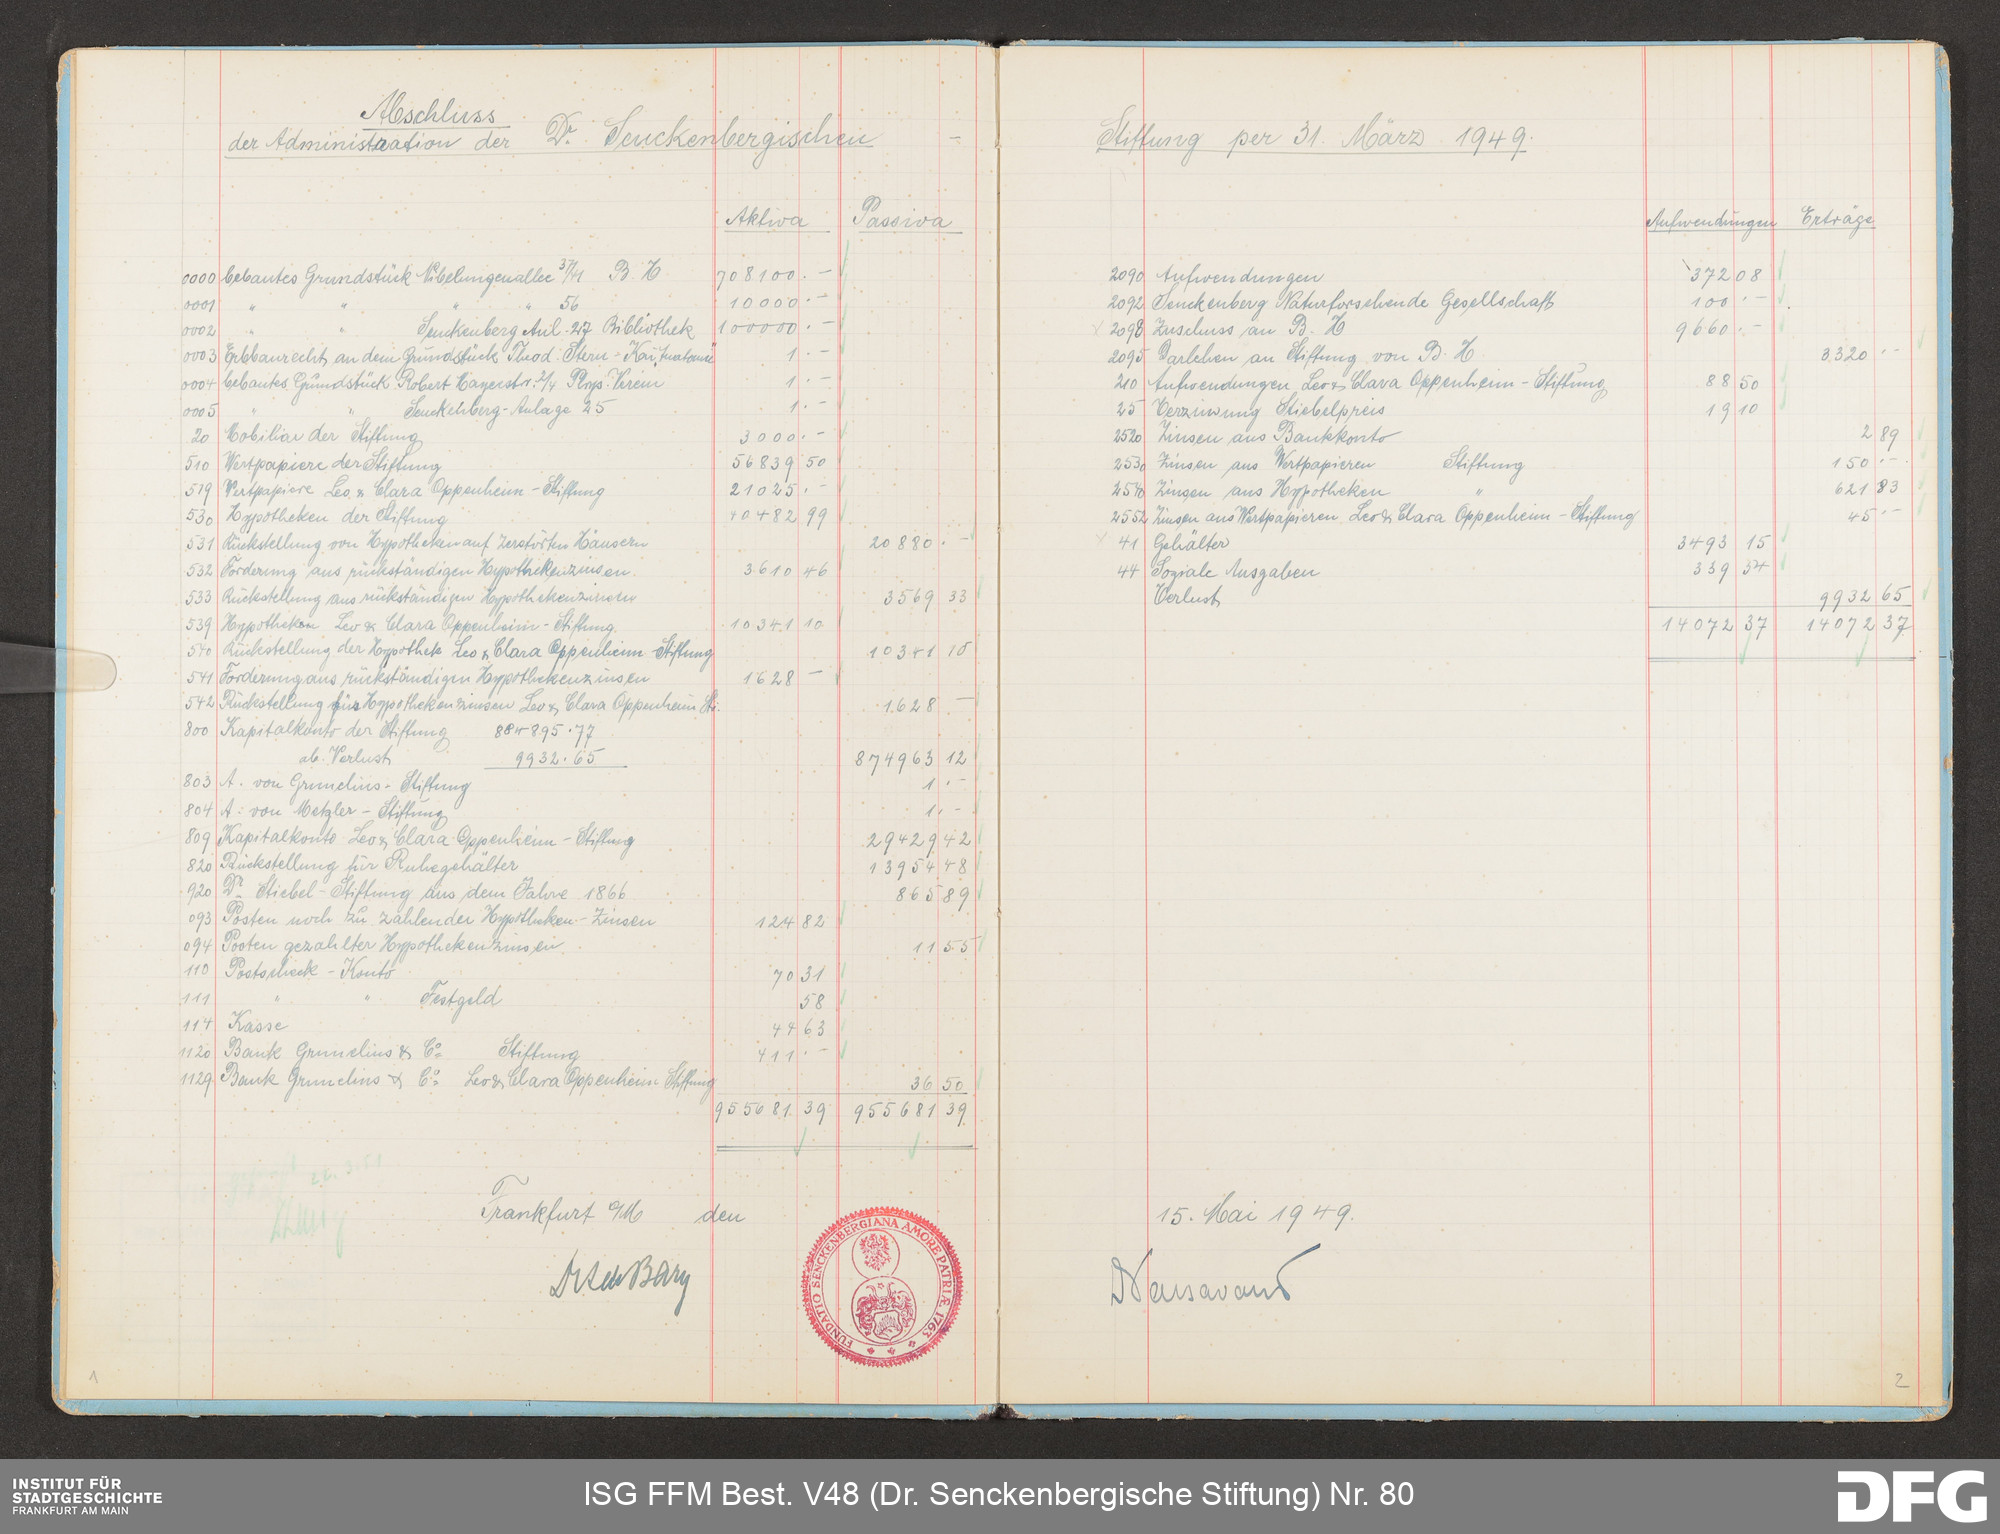 Abschluss
der Administration der Dr. Senckenbergischen –
Aktiva Passiva
0000 bebautes Grundstück Nibelungenallee 37/41 B. H 708100.–
0001 " " " " 56 10000.–
0002 " " Senckenberg Anl. 27 Bibliothek 100000.–
0003 Erbbaurecht an dem Grundstück Theod. Stern-Kai 1.–
0004 bebautes Grundstück Robert Mayerstr. 2/4 Phys. Verein 1.–
0005 " " Senckenberg-Anlage 25 1.–
20 Mobiliar der Stiftung 3000.–
510 Wertpapiere der Stiftung 56839 50
519 Wertpapiere Leo & Clara Oppenheim-Stiftung 21025.–
530 Hypotheken der Stiftung 40482 99
531 Rückstellung von Hypotheken auf zerstörten Häusern 20880.–
532 Forderung aus rückständigen Hypothekenzinsen. 3610 46
533 Rückstellung aus rückständigen Hypothekenzinsen 3569 33
539 Hypotheken Leo & Clara Oppenheim-Stiftung 10341 10
540 Rückstellung der Hypothek Leo & Clara Oppenheim-Stiftung 10341 10
541 Forderung aus rückständigen Hypothekenzinsen 1628 –
542 Rückstellung für Hypothekenzinsen Leo & Clara Oppenheim St. 1628 –
800 Kapitalkonto der Stiftung 884895.77
ab Verlust 9932.65 874963 12
803 A. von Grunelius-Stiftung 1.–
804 A. von Metzler-Stiftung 1.–
809 Kapitalkonto Leo & Clara Oppenheim-Stiftung 29429 42
820 Rückstellung für Ruhegehälter 13954 48
920 Dr. Stiebel-Stiftung aus dem Jahre 1866 865 89
093 Posten noch zu zahlender Hypotheken-Zinsen 124 82
094 Posten gezahlter Hypothekenzinsen 11 55
110 Postscheck-Konto 70 31
111 " " Festgeld 58
114 Kasse 44 63
1120 Bank Grunelius & Co. Stiftung 411.–
1129 Bank Grunelius & Co. Leo & Clara Oppenheim Stiftung 36 50
955681 39 955681 39
Frankfurt a/M den
Dr A de Bary
FUNDATIO SENCKENBERGIANA AMORE PATRIÆ 1763
1
Stiftung per 31. März 1949.
Aufwendungen Erträge
2090 Aufwendungen 372 08
2092 Senckenberg Naturforschende Gesellschaft 100.–
2098 Zuschuss an B. H 9660.–
2095 Darlehen an Stiftung von B. H 3320.–
210 Aufwendungen Leo & Clara Oppenheim-Stiftung 88 50
25 Verzinsung Stiebelpreis 19 10
2520 Zinsen aus Bankkonto 2 89
2530 Zinsen aus Wertpapieren Stiftung 150.–
2540 Zinsen aus Hypotheken " 621 83
2552 Zinsen aus Wertpapieren Leo & Clara Oppenheim-Stiftung 45.–
41 Gehälter 3493 15
44 Soziale Ausgaben 339 54
Verlust 9932 65
14072 37 14072 37
15. Mai 1949.
2
INSTITUT FÜR
STADTGESCHICHTE
FRANKFURT AM MAIN
ISG FFM Best. V48 (Dr. Senckenbergische Stiftung) Nr. 80
DFG